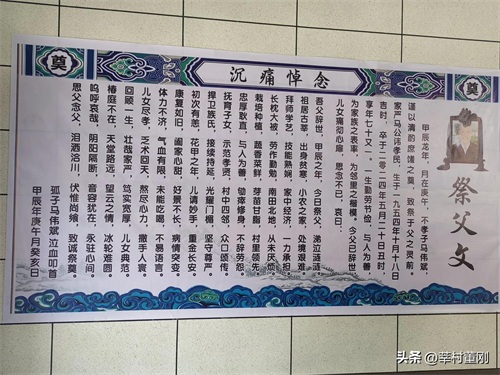 奠
沉痛悼念
奠
祭父文
甲辰龙年，月在庚午，不孝子马伟斌
谨以清酌庶馐之奠，致祭于父之灵前。
家严马公讳孝民，生于一九五四年十月十八日
吉时，卒于二零二四年五月二十日丑时，
享年七十又一。一生勤劳节俭，与人为善，
为家族之表率，为邻里之楷模，今父已辞世
儿女痛彻心扉，思念不已，哀曰：
吾父辞世，甲辰之年，今日祭父，涕泣涟涟。
祖居古莘，出身贫寒，小农之家，处境艰难。
拜师学艺，技能熟娴，家中经济，一力承担。
长枕大被，劳作勤勉，南田北地，从未厌烦。
栽培种植，蔬香菜鲜，芽苗甘甜，村里领先。
忠厚耿直，与人为善，修身，不辞劳怨。
抚育子女，示范孝贤，村中四邻，众口颂传。
捍卫族氏，接续持延，光耀门楣，坚守尊严。
初次有恙，花甲之年，儿请妙手，重长安。
康复如旧，阖家心甜，好景不长，病情突变。
体力不济，气血有限，未能吃喝，不易语言。
儿女尽孝，乏术回天，熬尽心力，撒手人寰。
回顾一生，壮哉家严，笃实宽厚，儿女典范。
椿庭不在，天堂路远，望云之情，冰轮难圆。
呜呼哀哉，阴阳隔断，音容犹在，永驻心间。
思父念父，泪洒洺川，伏惟尚飨，致诚祭奠。
孤子马伟斌泣血叩首
甲辰年庚午月癸亥日
头条 @莘村董刚